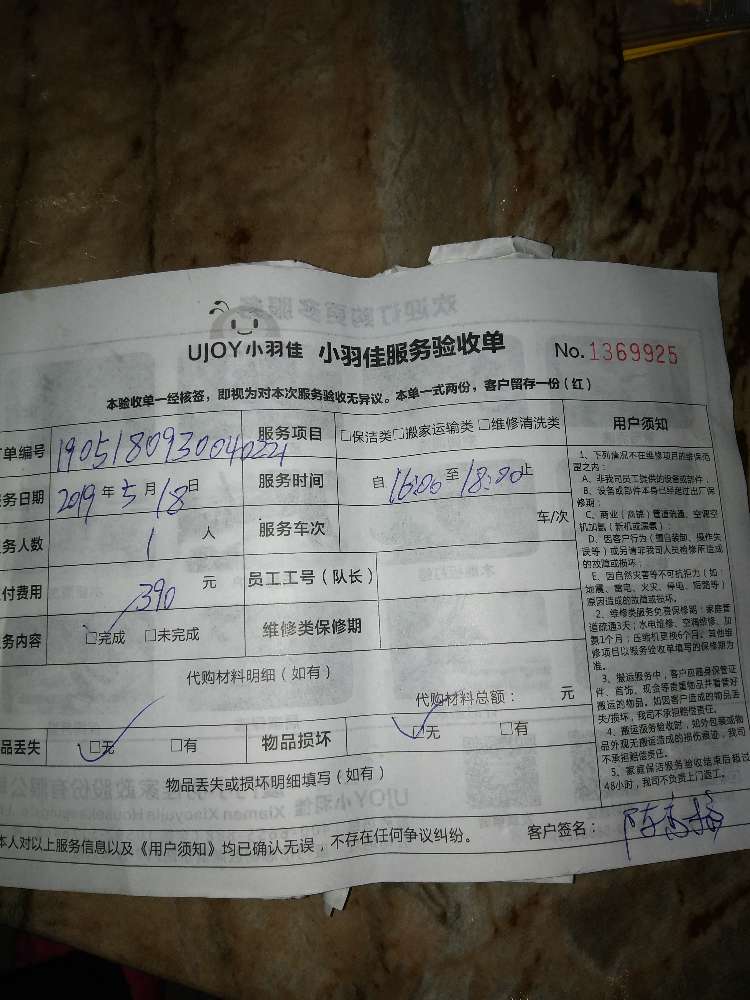 UJOY小羽佳 小羽佳服务验收单 No.1369925
本验收单一经核签，即视为对本次服务验收无异议。本单一式两份，客户留存一份（红）
单编号 190518093004022 服务项目 □保洁类□搬家运输类□维修清洗类 用户须知
务日期 2019年5月18日 服务时间 自16:00至18:00止
务人数 1 人 服务车次 车/次
付费用 390 元 员工工号（队长）
务内容 □完成 □未完成 维修类保修期
代购材料明细（如有）
代购材料总额： 元
品丢失 □无 □有 物品损坏 □无 □有
物品丢失或损坏明细填写（如有）
本人对以上服务信息以及《用户须知》均已确认无误，不存在任何争议纠纷。 客户签名：
1、下列情况不在维修项目的维保范
围之内：
A、非我司员工提供的设备或部件；
B、设备或部件本身已经超过出厂保
修期；
C、商业（商铺）管道疏通、空调空
机加氨（新机或漏氨）；
D、因客户行为（擅自装卸、操作失
误等）或另请非我司人员检修所造成
的故障或损坏；
E、因自然灾害等不可抗拒力（如：
地震、雷电、火灾、停电、短路等）
原因造成的故障或损坏。
2、维修类服务免费保修期：家庭管
道疏通3天；水电维修、空调维修、加
氨1个月；压缩机更换6个月。其他维
修项目以服务验收单填写的保修期为
准。
3、搬运服务中，客户应随身保管证
件、首饰、现金等贵重物品并看管好
搬运的物品。如因客户造成的物品丢
失/损坏，我司不承担赔偿责任。
4、搬运服务验收时，如外包装或物
品外观无搬运造成的损伤痕迹，我司
不承担赔偿责任。
5、家庭保洁服务验收结束后超过
48小时，我司不负责上门返工。